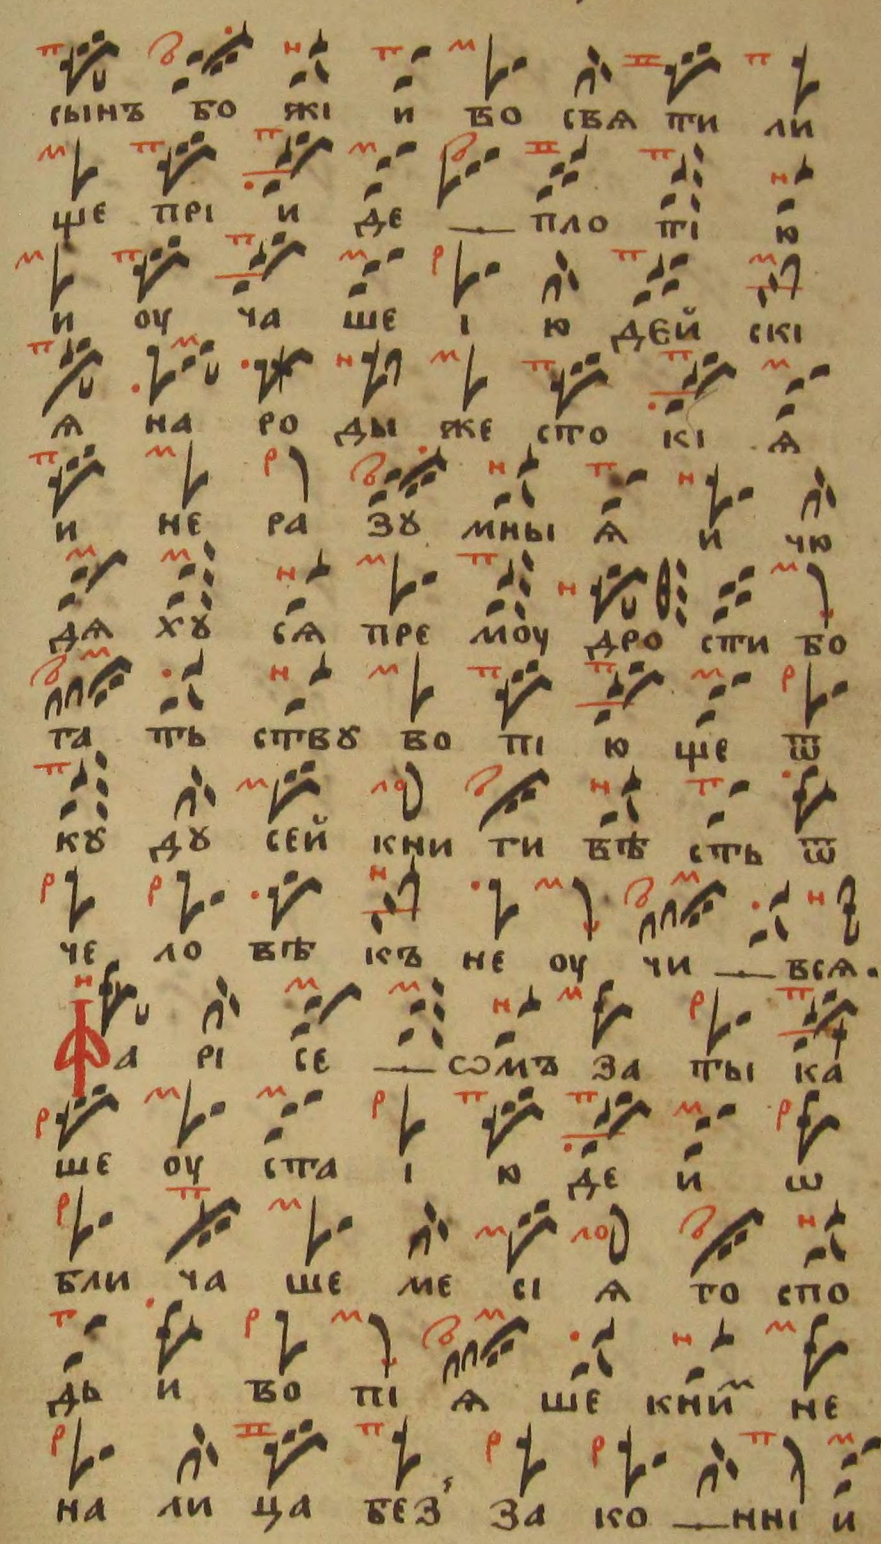 сынъ бо жі и во свя ти ли
ще прі и де пло ті ю
и оу ча ше і ю дей скі
я на ро ды же сто кі я
и не ра зꙋ мны я и чю
дя хꙋ ся пре моу дро сти бо
га ть ствꙋ во пі ю ще ѿ
кꙋ дꙋ сей кни ги вѣ сть ѿ
че ло вѣ къ не оу чи вся.
Фа рі се ѡмъ за ты ка
ше оу ста і ю де и ѡ
бли ча ше ме сі я го спо
дь и во пі я ше книⷨ не
на ли ца без за ко нні и